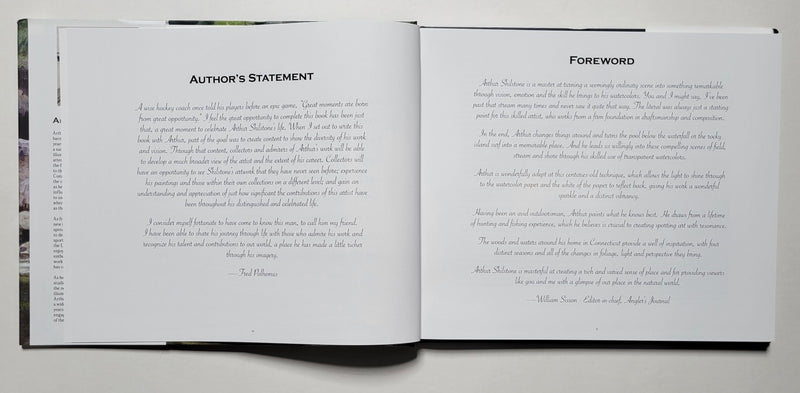 AUTHOR'S STATEMENT
A wise hockey coach once told his players before an epic game, "Great moments are born
from great opportunity." I feel the great opportunity to complete this book has been just
that, a great moment to celebrate Arthur Shilstone's life. When I set out to write this
book with Arthur, part of the goal was to create content to show the diversity of his work
and vision. Through that content, collectors and admirers of Arthur's work will be able
to develop a much broader view of the artist and the extent of his career. Collectors will
have an opportunity to see Shilstone's artwork that they have never seen before; experience
his paintings and those within their own collections on a different level; and gain an
understanding and appreciation of just how significant the contributions of this artist have
been throughout his distinguished and celebrated life.
I consider myself fortunate to have come to know this man, to call him my friend.
I have been able to share his journey through life with those who admire his work and
recognize his talent and contributions to our world, a place he has made a little richer
through his imagery.
— Fred Polhemus
FOREWORD
Arthur Shilstone is a master at turning a seemingly ordinary scene into something remarkable
through vision, emotion and the skill he brings to his watercolors. You and I might say, I've been
past that stream many times and never saw it quite that way. The literal was always just a starting
point for this skilled artist, who works from a firm foundation in draftsmanship and composition.
In the end, Arthur changes things around and turns the pool below the waterfall or the rocky
island surf into a memorable place. And he leads us willingly into these compelling scenes of field,
stream and shore through his skilled use of transparent watercolors.
Arthur is wonderfully adept at this centuries old technique, which allows the light to shine through
to the watercolor paper and the white of the paper to reflect back, giving his work a wonderful
sparkle and a distinct vibrancy.
Having been an avid outdoorsman, Arthur paints what he knows best. He draws from a lifetime
of hunting and fishing experience, which he believes is crucial to creating sporting art with resonance.
The woods and waters around his home in Connecticut provide a well of inspiration, with four
distinct seasons and all of the changes in foliage, light and perspective they bring.
Arthur Shilstone is masterful at creating a rich and varied sense of place and for providing viewers
like you and me with a glimpse of our place in the natural world.
—William Sisson Editor in chief, Angler's Journal